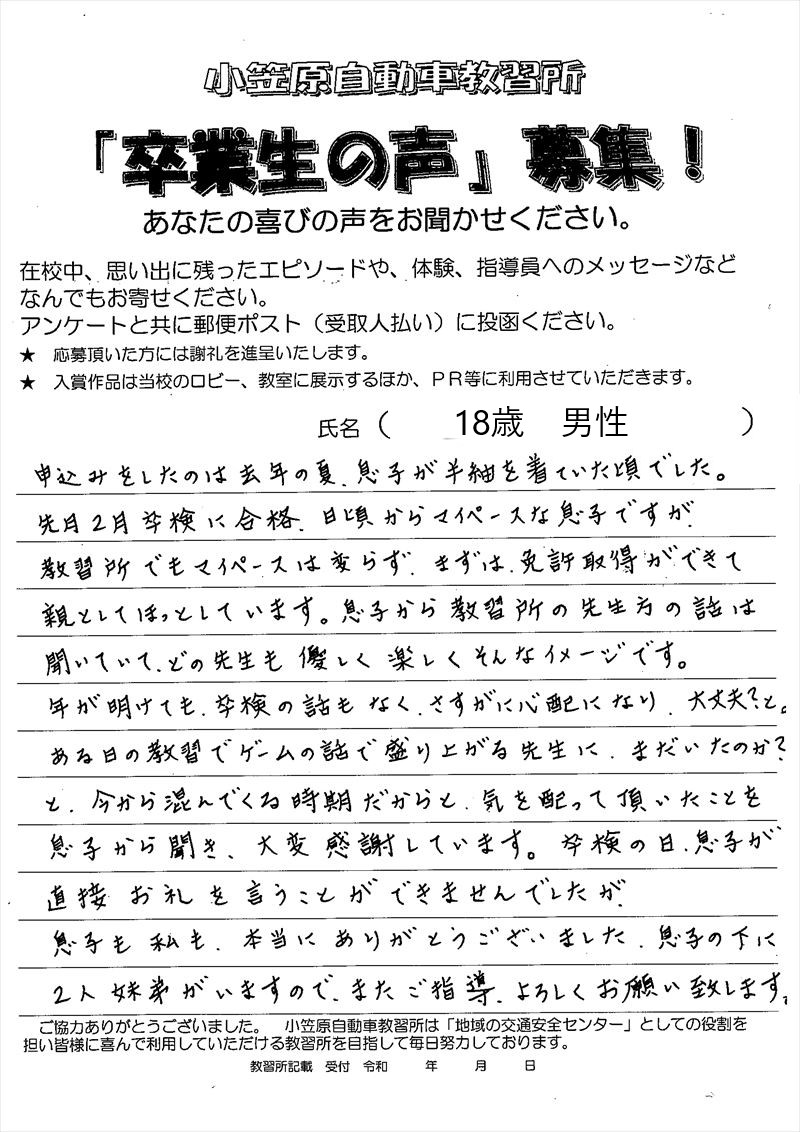 小笠原自動車教習所
「卒業生の声」募集！
あなたの喜びの声をお聞かせください。
在校中、思い出に残ったエピソードや、体験、指導員へのメッセージなど
なんでもお寄せください。
アンケートと共に郵便ポスト（受取人払い）に投函ください。
★ 応募頂いた方には謝礼を進呈いたします。
★ 入賞作品は当校のロビー、教室に展示するほか、ＰＲ等に利用させていただきます。
氏名（ 18歳 男性 ）
申込みをしたのは去年の夏、息子が半袖を着ていた頃でした。
先月2月卒検に合格、日頃からマイペースな息子ですが、
教習所でもマイペースは変らず、まずは、免許取得ができて
親としてほっとしています。息子から教習所の先生方の話は
聞いていて、どの先生も優しく楽しくそんなイメージです。
年が明けても、卒検の話もなく、さすがに心配になり、大丈夫?と。
ある日の教習でゲームの話で盛り上がる先生に、まだいたのか?
と、今から混んでくる時期だからと、気を配って頂いたことを
息子から聞き、大変感謝しています。卒検の日、息子が
直接お礼を言うことができませんでしたが、
息子も私も、本当にありがとうございました。息子の下に
2人妹弟がいますので、またご指導、よろしくお願い致します。
ご協力ありがとうございました。 小笠原自動車教習所は「地域の交通安全センター」としての役割を
担い皆様に喜んで利用していただける教習所を目指して毎日努力しております。
教習所記載 受付 令和 年 月 日